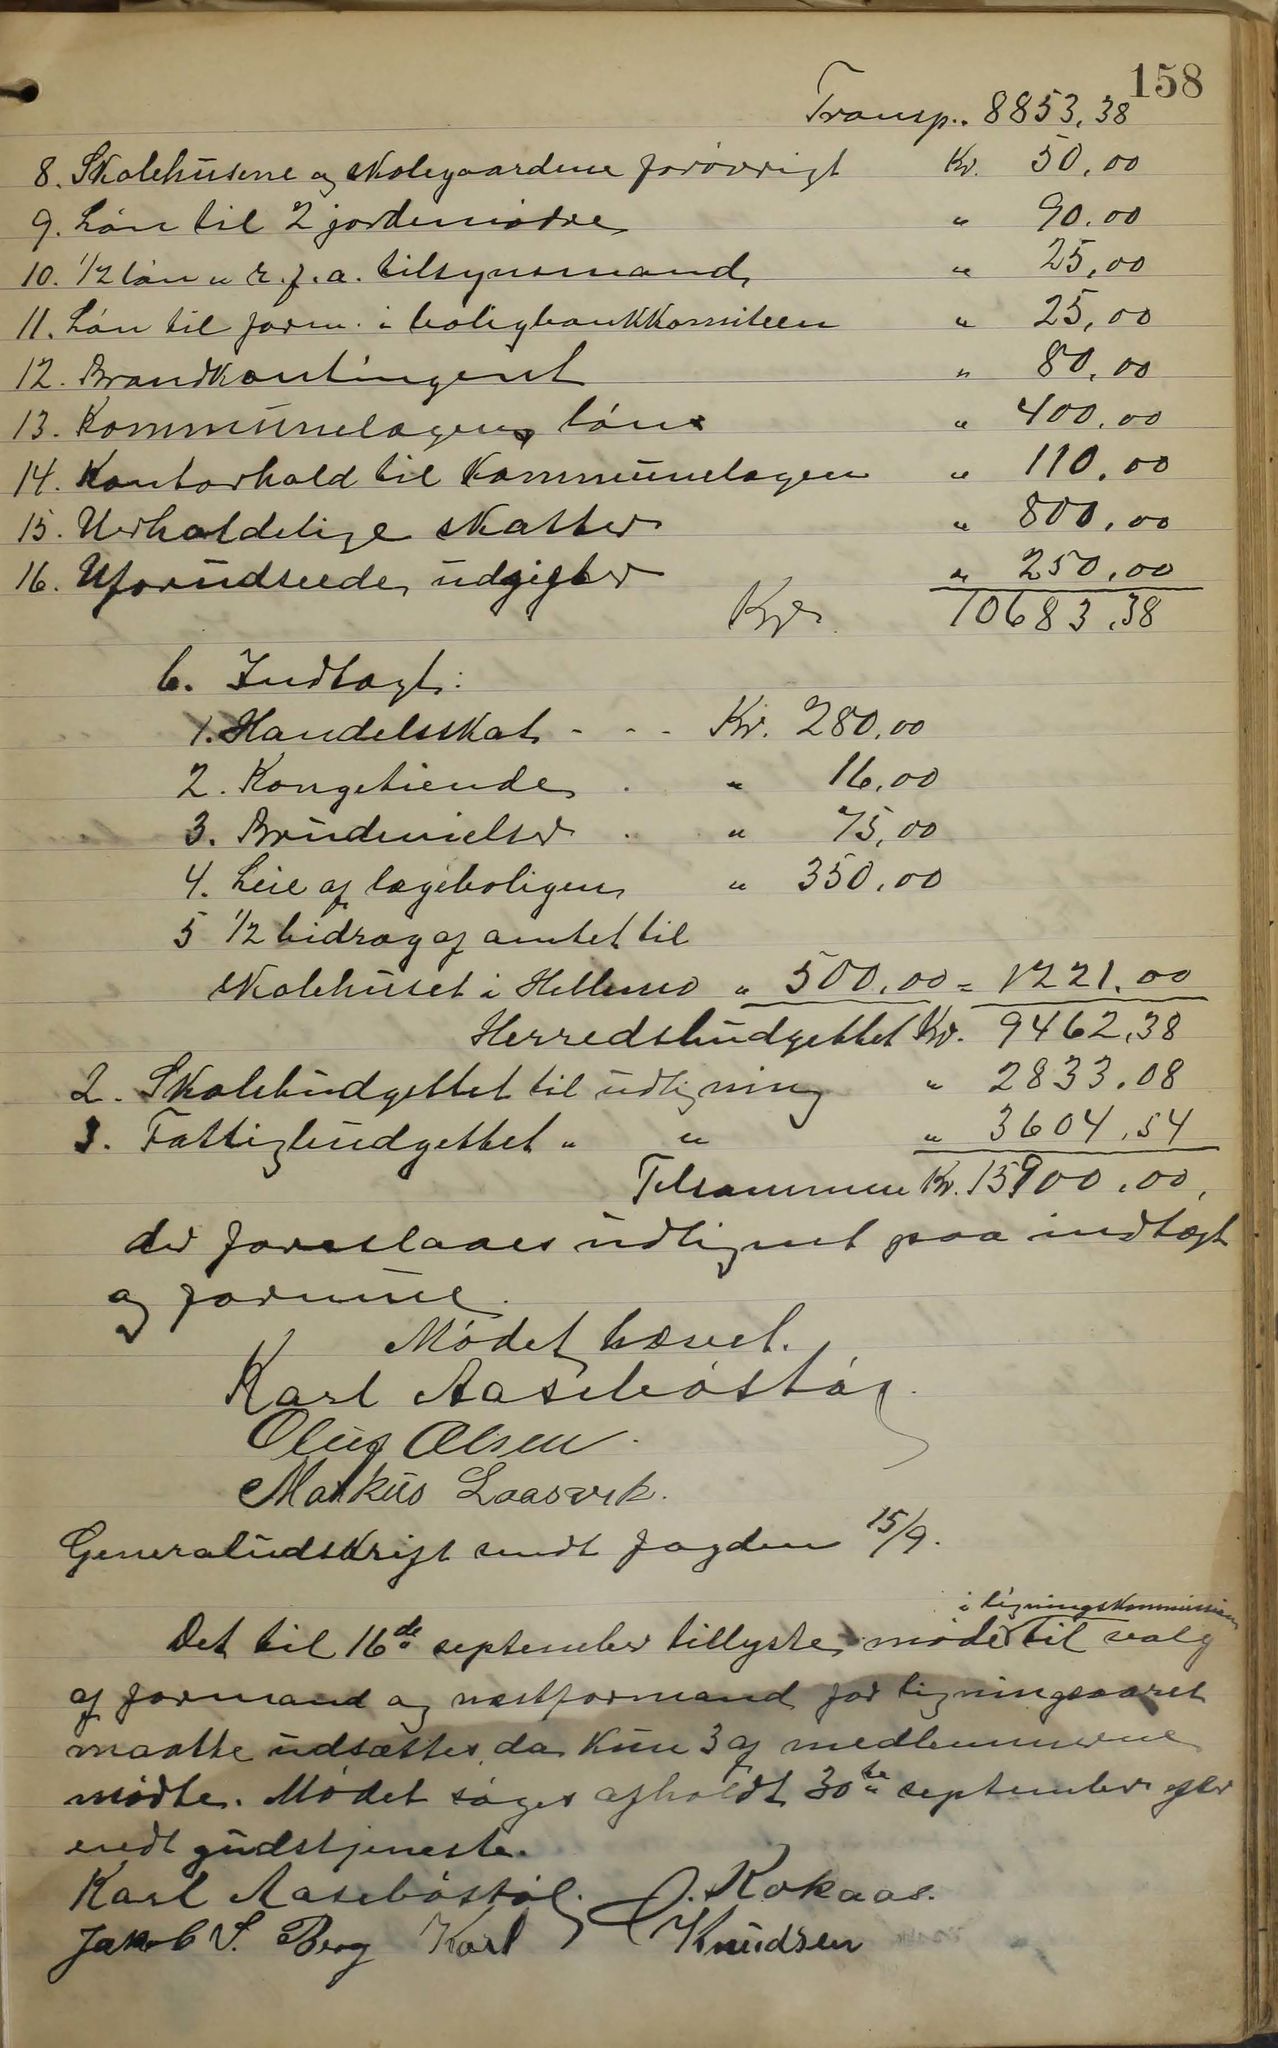 158
Transp.. 8853,38
8. Skolehusene og skolegaardene forøvrigt Kr. 50,00
9. Løn til 2 jordemødre " 90,00
10. 1/2 løn " r.f.a. tilsynsmand " 25,00
11. Løn til form. i boligbankkomiteen " 25,00
12. Brandkontingent " 80,00
13. Kommunelægens løn " 400,00
14. Kontorhold til Kommunelægen " 110,00
15. Uerholdelige skatter " 800,00
16. Uforudseede udgifter " 250,00
Kr. 10683,38
b. Indtægt:
1. Handelsskat - - - Kr. 280,00
2. Kongetiende . " 16,00
3. Brudevielser . " 75,00
4. Leie af lægeboligen " 350,00
5 1/2 bidrag af amtet til
skolehuset i Hellemo " 500,00 = 1221,00
Herredsbudgettet Kr. 9462,38
2. Skolebudgettet til udligning " 2833,08
3. Fattigbudgettet " " " 3604,54
Tilsammen Kr. 15900,00,
der foreslaaes udlignet paa indtægt
og formue.
Mødet hævet.
Karl Aasebøstøl
Oluf Olsen.
Markus Laasvik.
Generaludskrift sendt fogden 15/9.
i ligningskommissionen
Det til 16de september tillyste møde til valg
af formand og næstformand for ligningsaaret
maatte udsættes, da kun 3 af medlemmerne
mødte. Mødet søges afholdt 30te september efter
endt gudstjeneste.
Karl Aasebøstøl. J. Kokaas.
Jakob S. Berg Karl Knudsen